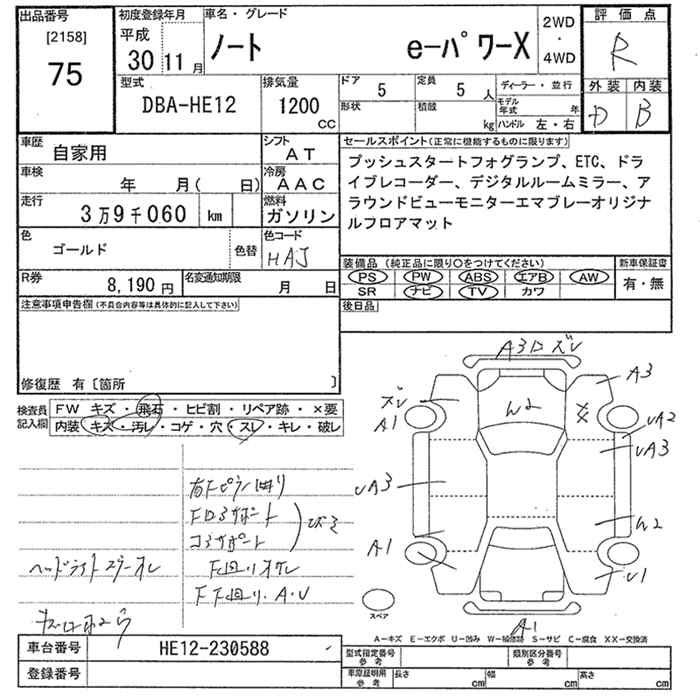 出品番号
[2158]
75
初度登録年月
平成
30 11 月
車名・グレード
ノート e-パワーX
2WD
・
4WD
評価点
R
外装 内装
D B
型式
DBA-HE12
排気量
1200 CC
ドア 5
定員 5 人
形状
積載 kg
ディーラー・並行
モデル年式 年
ハンドル 左・右
車歴
自家用
シフト
AT
車検
年 月( 日)
冷房
AAC
走行
3万9千060 km
燃料
ガソリン
色
ゴールド
色替
色コード
HAJ
R券
8,190 円
名変通知期限
月 日
セールスポイント(正常に機能するものに限ります)
プッシュスタートフォグランプ、ETC、ドラ
イブレコーダー、デジタルルームミラー、ア
ラウンドビューモニターエマブレーオリジナ
ルフロアマット
装備品(純正品に限り○をつけてください)
PS PW ABS エアB AW
SR ナビ TV カワ
新車保証書
有・無
後日品
注意事項申告欄(不具合内容等は具体的に記入して下さい)
修復歴 有〔箇所 〕
検査員記入欄
FW キズ・飛石・ヒビ割・リペア跡・×要
内装 キズ・汚レ・コゲ・穴・スレ・キレ・破レ
コアサポート
F下回り・A・U
A3ロ ズレ
A3
ズレ
A1
W2
XX
UA2
UA3
UA3
A1
W2
U1
A1
スペア
A-キズ E-エクボ U-凹み W-補修跡 S-サビ C-腐食 XX-交換済
車台番号
HE12-230588
登録番号
型式指定番号
参考
類別区分番号
参考
車庫証明用
参考
長さ cm
幅 cm
高さ cm